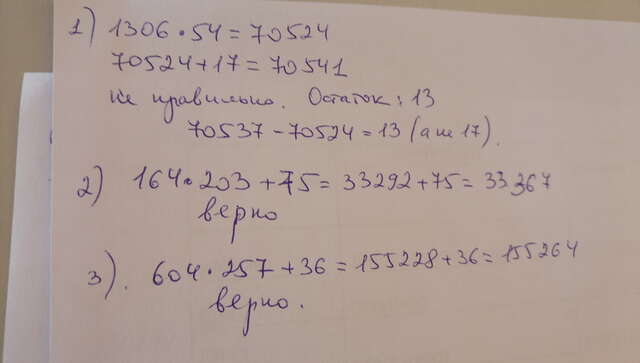 1) 1306 · 54 = 70524
70524 + 17 = 70541
не правильно. Остаток: 13
70537 - 70524 = 13 (а не 17).
2) 164 · 203 + 75 = 33292 + 75 = 33367
верно
3). 604 · 257 + 36 = 155228 + 36 = 155264
верно.